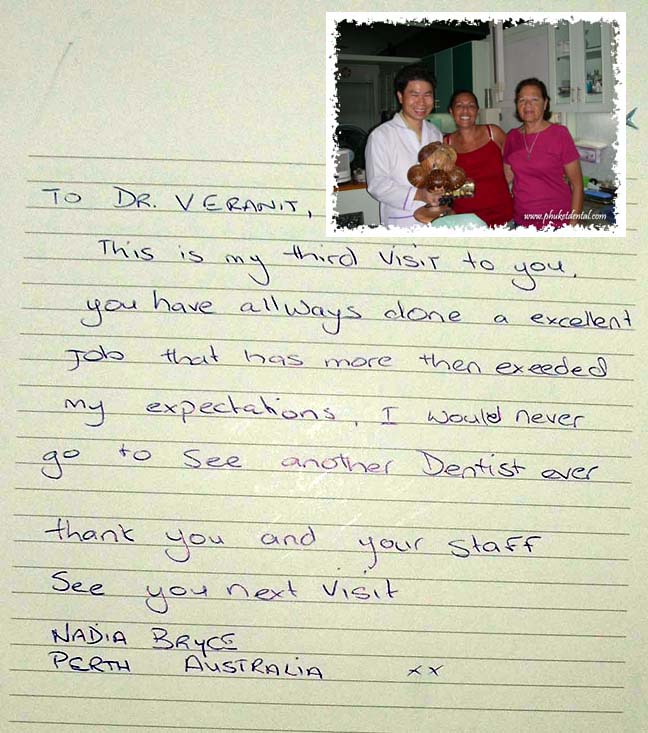 www.phuketdental.com
TO DR. VERANIT,
This is my third visit to you.
you have allways done a excellent
Job that has more then exeeded
my expectations. I would never
go to see another Dentist ever
thank you and your staff
See you next visit
NADIA BRYCE
PERTH AUSTRALIA xx